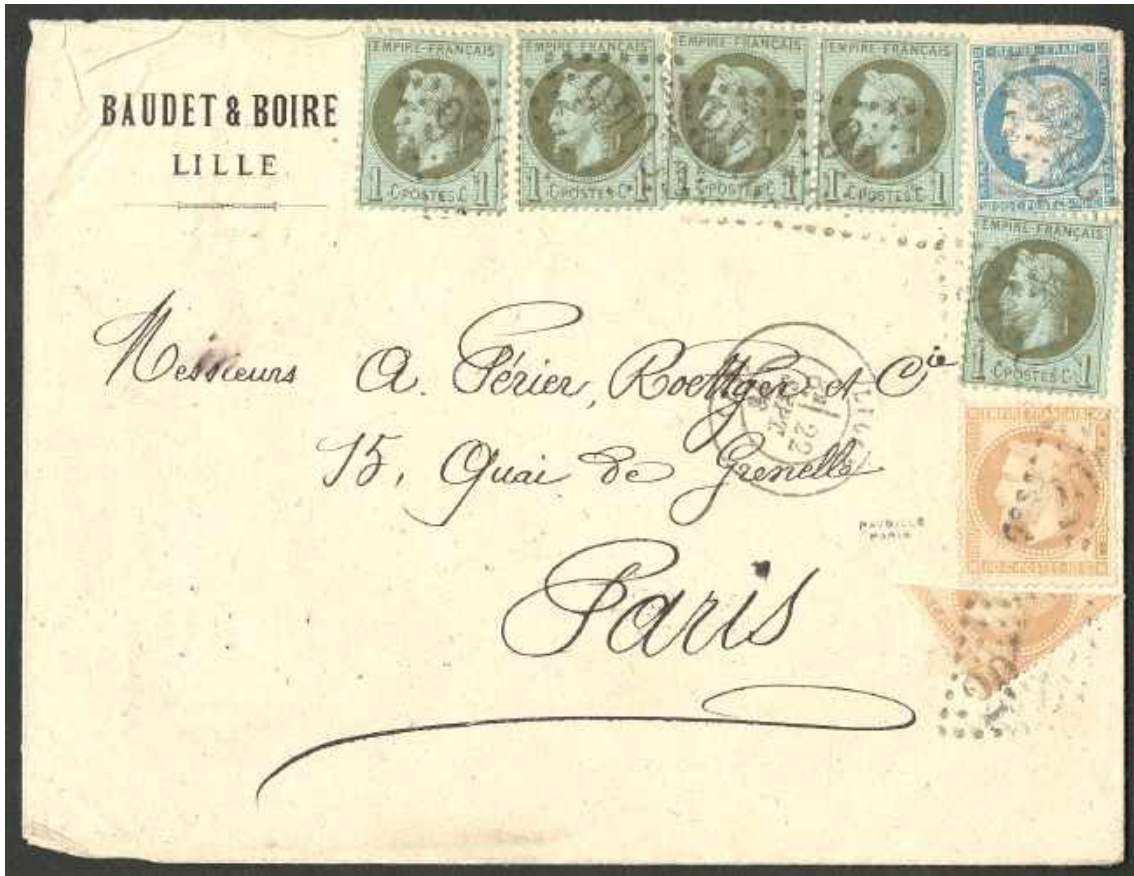 BAUDET & BOIRE
LILLE
EMPIRE FRANÇAIS
1 C. POSTES C. 1
EMPIRE FRANÇAIS
1 C. POSTES C. 1
EMPIRE FRANÇAIS
1 C. POSTES C. 1
EMPIRE FRANÇAIS
1 C. POSTES C. 1
EMPIRE FRANÇAIS
1 C. POSTES C. 1
Messieurs A. Périer, Roettger et Cie
15, Quai de Grenelle
Paris
LILLE
22
SEPT.
EMPIRE FRANÇAIS
10 C. POSTES 10 C.